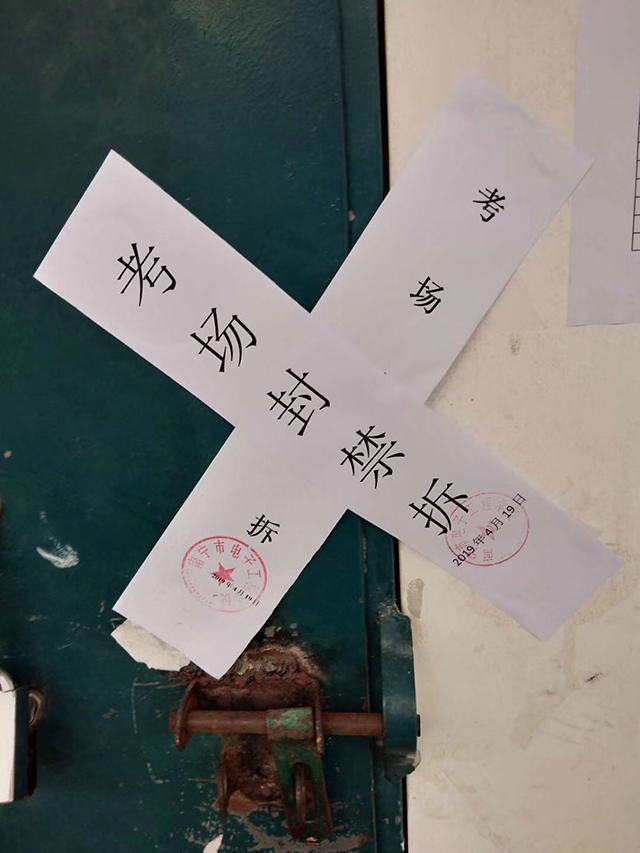 考场封禁拆
2019年4月19日
考场
拆
南宁市电子工
2019年4月19日